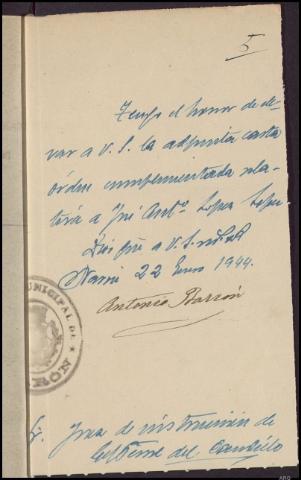 5
Tengo el honor de ele-
var a V. S. la adjunta carta
órden cumplimentada rela-
tiva a José Antº Lopez Lopez
Dios gue a V. S. m
22 Enero 1944.
Antonio Barzón
MUNICIPAL DE
NOR
Sr. Juez de instrucción de
del Caudillo